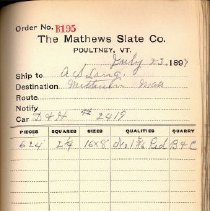 Order No. B195
The Mathews Slate Co.
POULTNEY, VT.
July 23, 1897
Ship to A S Lane
Destination
Route
Notify
Car D & H 2419
PIECES SQUARES SIZES QUALITIES QUARRY
624 24 16x8 No 1 Red B & C